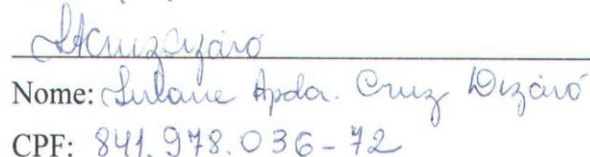 Nome: Apda. Cruz Dizaró
CPF: 841.978.036-72